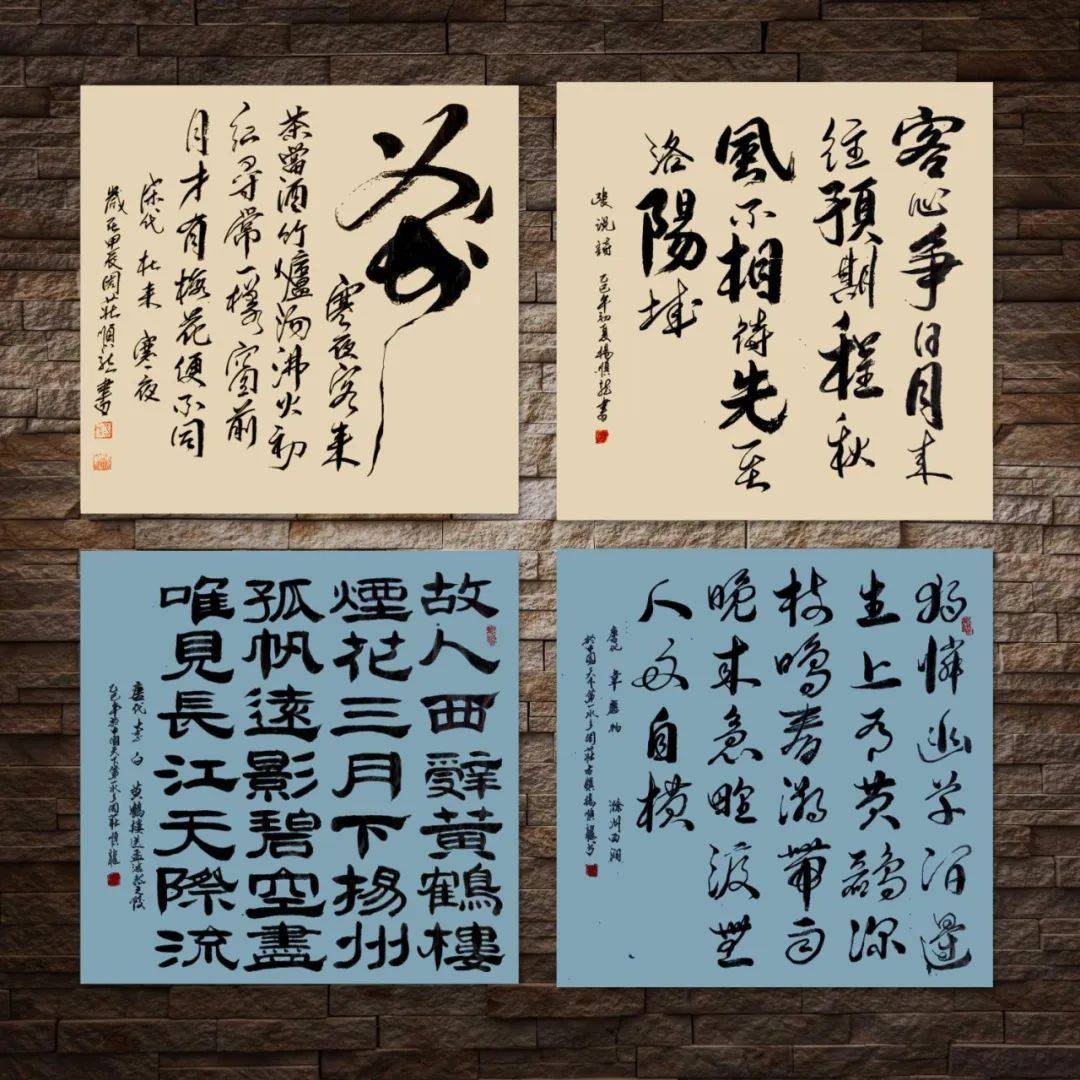 寒夜客来
茶當酒竹爐湯沸火初
紅尋常一樣窗前
月才有梅花便不同
宋代 杜耒 寒夜
客心爭日月来
往預期程秋
風不相待先至
洛陽城
張説詩 乙巳年初夏楊 書
故人西辭黃鶴樓
煙花三月下揚州
孤帆遠影碧空盡
唯見長江天際流
唐代 李白 黃鶴樓送孟浩然之
乙巳年於中國天下第一水乡周莊
獨憐幽草澗邊
生上有黃鸝深
樹鳴春潮帶雨
晚来急野渡無
人舟自橫
唐代 韋應物 滁州西澗
於中國天下第一水乡周莊